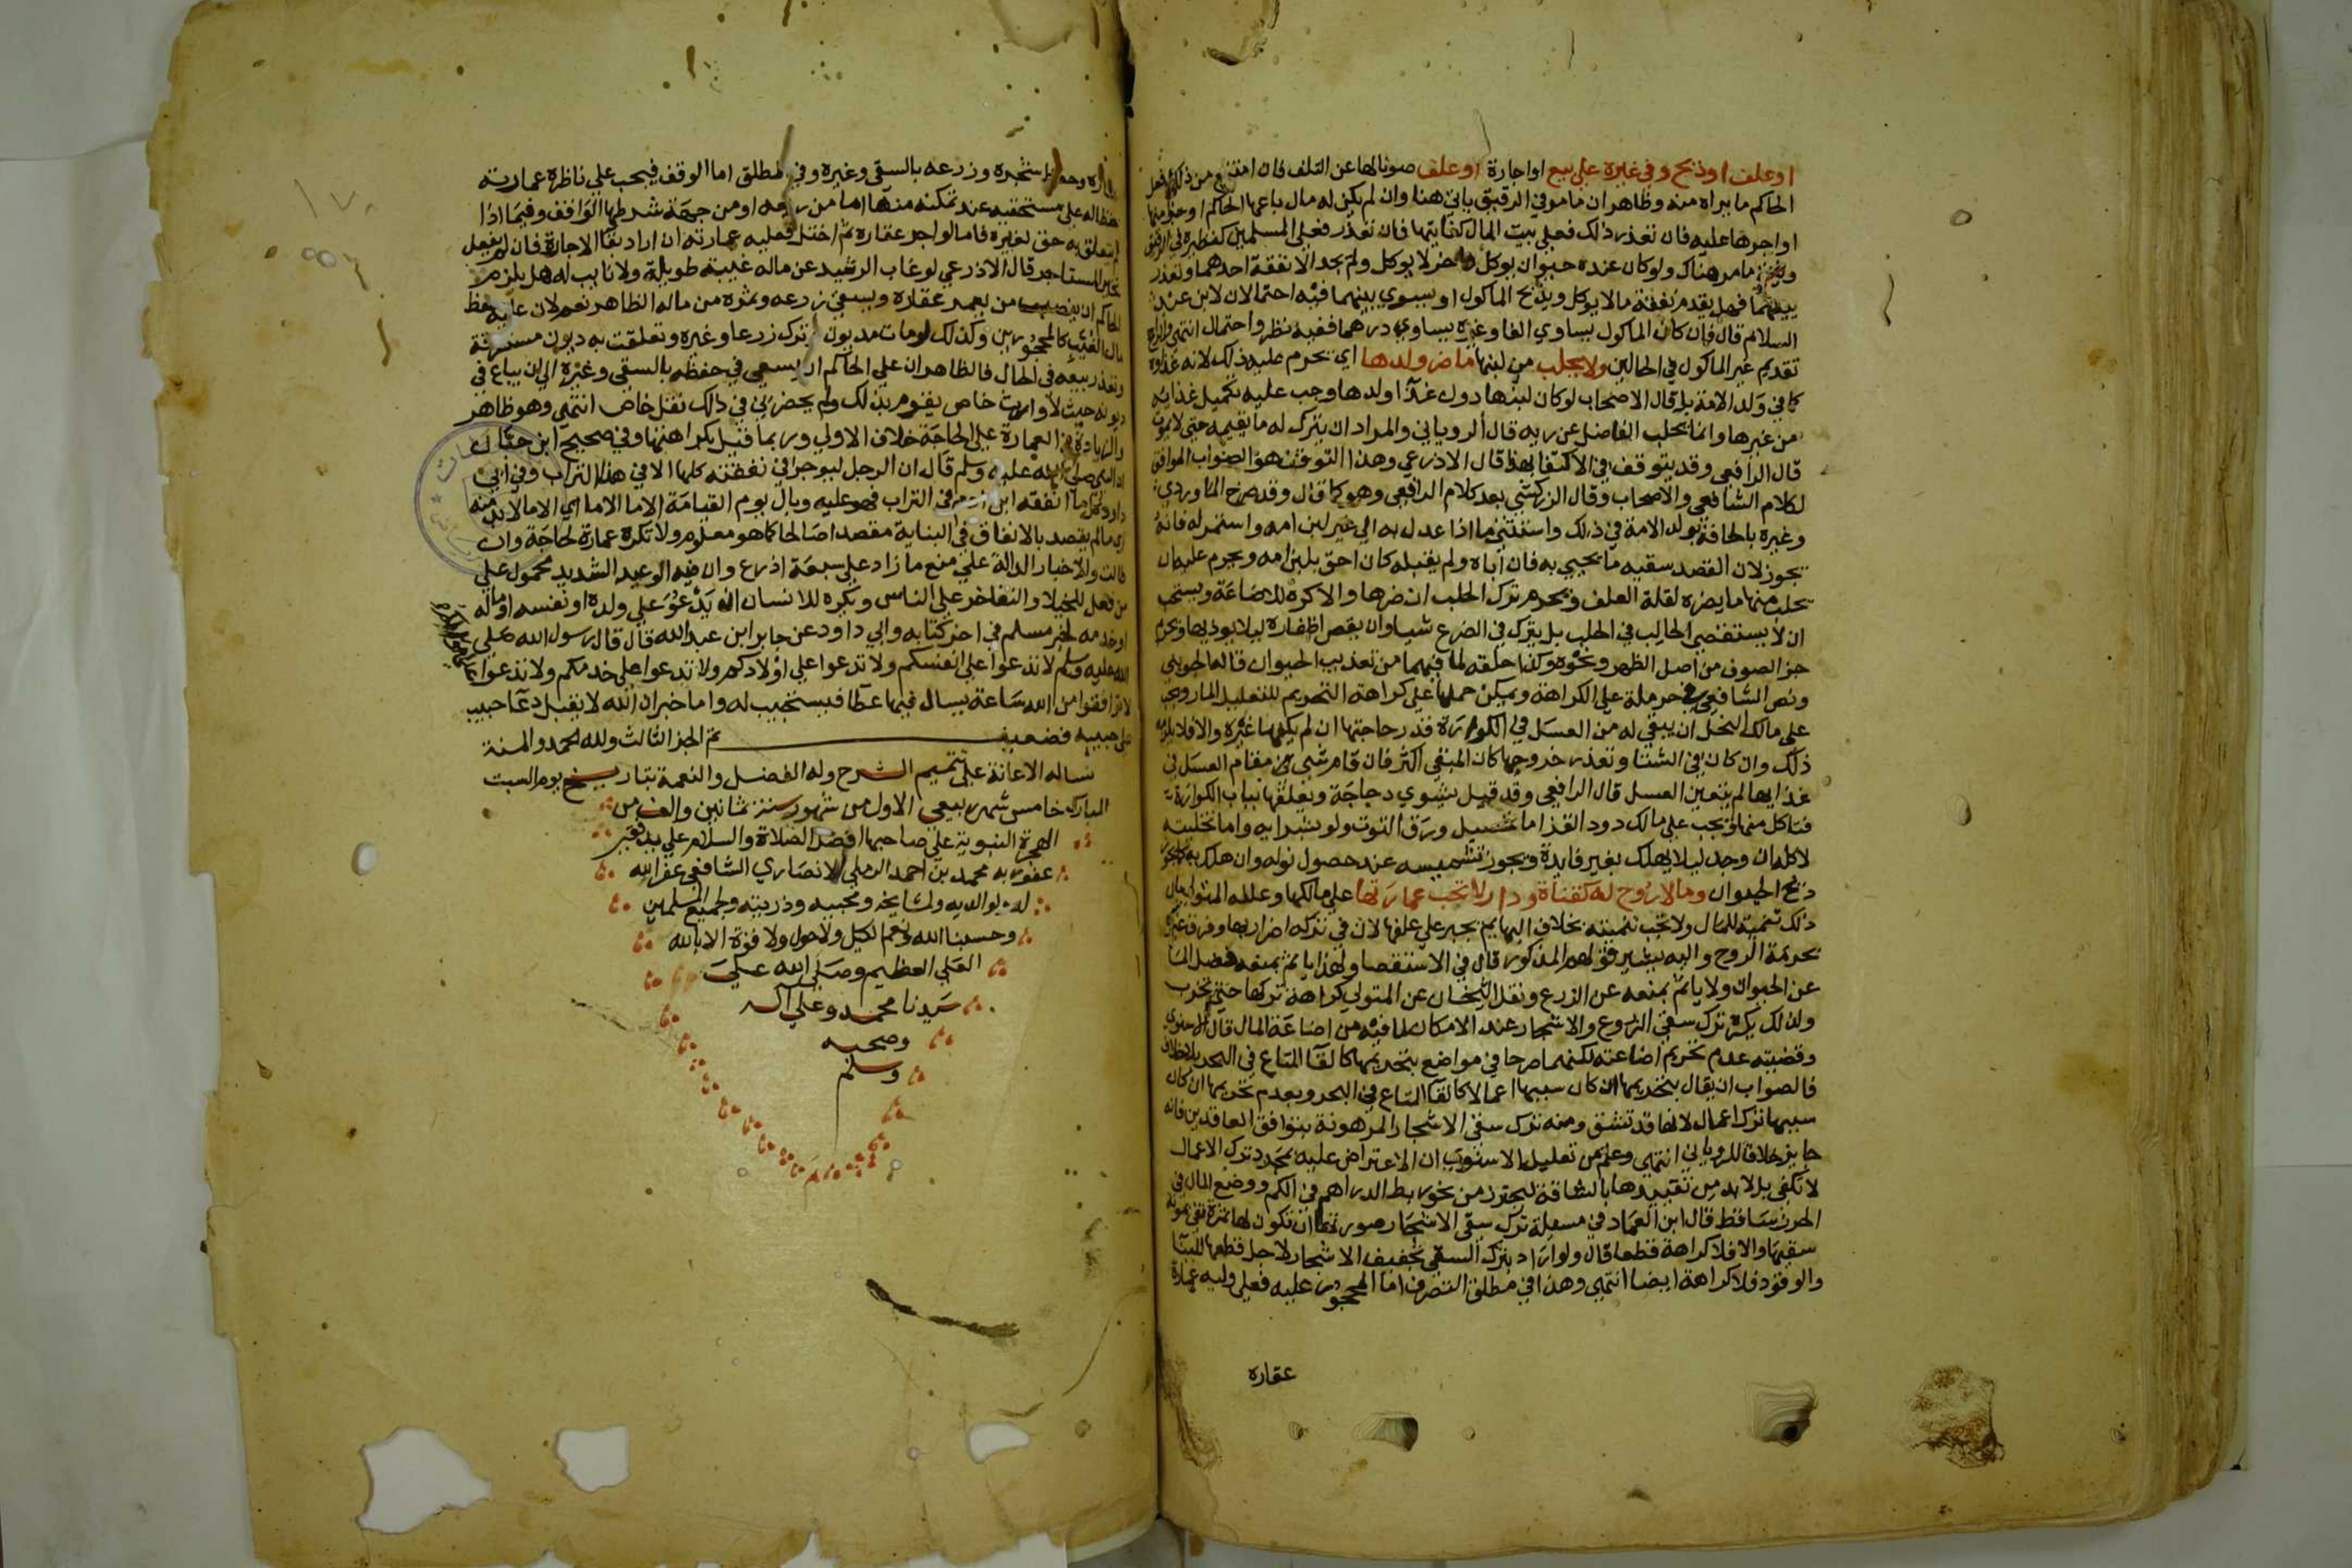 او علف او ذبح وفي غيره علي بيع او اجارة او علف صونا لها عن التلف فان امتنع من ذلك فعل
الحاكم ما يراه منه وظاهر ان ما مر في الرقيق ياتي هنا وان لم يكن له مال باعها الحاكم او جزا منها
او اجرها عليه فان تعذر ذلك فعلي بيت المال كفايتها فان تعذر فعلي المسلمين كنظيره في الرقيق
ويجئ ما مر هناك ولو كان عنده حيوان يوكل واخر لا يوكل ولم يجد الا نفقة احدهما وتعذر
بيعهما فهل يقدم نفقة ما لا يوكل ويذبح الماكول او يسوي بينهما فيه احتمالان لابن عبد
السلام قال فان كان الماكول يساوي الفا وغيره يساوي درهما ففيه نظر واحتمال انتهي والراجح
تقديم غير الماكول في الحالين ولا يحلب من لبنها ما ضر ولدها اي يحرم عليه ذلك لانه غذاوه
كما في ولد الامة بل قال الاصحاب لو كان لبنها دون غذا ولدها وجب عليه تكميل غذايه
من غيرها وانما يحلب الفاضل عن ريه قال الروياني والمراد ان يترك له ما يقيمه حتي لا يموت
قال الرافعي وقد يتوقف في الاكتفا بهذا قال الاذرعي وهذا التوقف هو الصواب الموافق
لكلام الشافعي والاصحاب وقال الزركشي بعد كلام الرافعي وهو كما قال وقد صرح الماوردي
وغيره بالحاقه بولد الامة في ذلك واستثني ما اذا عدل به الي غير لبن امه واستمراه فانه
يجوز لان القصد سقيه ما يحيي به فان اباه ولم يقبله كان احق بلبن امه ويحرم عليه ان
يحلب منها ما يضره لقلة العلف ويحرم ترك الحلب ان ضرها والا كره للاضاعة ويستحب
ان لا يستقصي الحالب في الحلب بل يترك في الضرع شيا وان يقص اظفاره ليلا يوذيها ويحرم
جز الصوف من اصل الظهر ونحوه وكذا حلقه لما فيهما من تعذيب الحيوان قاله الجويني
ونص الشافعي في حرملة علي الكراهة ويمكن حملها علي كراهة التحريم للتعليل المار ويجب
علي مالك النحل ان يبقي له من العسل في الكوارة قدر حاجتها ان لم يكفها غيره والا فلا يلزمه
ذلك وان كان في الشتا وتعذر خروجها كان المبقي اكثر فان قام شي مقام العسل في
غذايها لم يتعين العسل قال الرافعي وقد قيل يشوي دجاجة ويعلقها بباب الكوارة
فتاكل منها ويجب علي مالك دود القز اما تحصيل ورق التوت ولو بشرايه واما تخليته
لاكله ان وجد ليلا يهلك بغير فايدة ويجوز تشميسه عند حصول نوله وان هلك به كما يجوز
ذبح الحيوان وما لا روح له كقناة ودار لا تجب عمارتها علي مالكها وعلله المتولي بان
ذلك تنمية للمال ولا تجب تنميته بخلاف البهايم يجبر علي علفها لان في تركه اضرارها وفرق غيره
بحرمة الروح واليه يشير قولهم المذكور قال في الاستقصا ولهذا ياثم بمنعه فضل الما
عن الحيوان ولا ياثم بمنعه عن الزرع ونقل الشيخان عن المتولي كراهة تركها حتي تخرب
ولذلك يكره ترك سقي الزروع والاشجار عند الامكان لما فيه من اضاعة المال قال الاسنوي
وقضيته عدم تحريم اضاعته لكنهما صرحا في مواضع بتحريمها كالقا المتاع في البحر بلا
فالصواب ان يقال بتحريمها ان كان سببها اعمالا كالقا المتاع في البحر وبعدم تحريمها ان كان
سببها ترك اعمال لانها قد تشق ومنه ترك سقي الاشجار المرهونة بتوافق العاقدين فانه
جايز خلافا للروياني انتهي وعلم من تعليل الاسنوي ان الاعتراض عليه بمجرد ترك الاعمال
لا تكفي بل لا بد من تقييدها بالشاقة ليحترز من نحو ربط الدراهم في الكم ووضع المال في
الحرز ساقط قال ابن العماد في مسيلة ترك سقي الاشجار صورتها ان تكون لها ثمرة تفي بمونة
سقيها والا فلا كراهة قطعا قال ولو اراد بترك السقي تجفيف الاشجار لاجل قطعها للبنا
والوقود فلا كراهة ايضا انتهي وهذا في مطلق التصرف اما المحجور عليه فعلي وليه عمارة
عقاره
وحفظ شجره وزرعه بالسقي وغيره وفي المطلق اما الوقف فيجب علي ناظره عمارته
حفظا له علي مستحقيه عند تمكنه منها اما من ريعه او من جهة شرطها الواقف وفيما اذا
لم يتعلق به حق لغيره فاما لو اجر عقاره ثم اختل فعليه عمارته ان اراد بقا الاجارة فان لم يفعل
تخير المستاجر قال الاذرعي لو غاب الرشيد عن ماله غيبة طويلة ولا نايب له هل يلزم
الحاكم ان ينصب من يعمر عقاره ويسقي زرعه وثمره من ماله الظاهر نعم لان عليه حفظ
مال الغيب كالمحجورين وكذلك لو مات مديون وترك زرعا وغيره وتعلقت به ديون مستغرقة
وتعذر بيعه في الحال فالظاهر ان علي الحاكم ان يسعي في حفظه بالسقي وغيره الي ان يباع في
ديونه حيث لا وارث خاص يقوم بذلك ولم يحضرني في ذلك نقل خاص انتهي وهو ظاهر
والزيادة في العمارة علي الحاجة خلاف الاولي وربما قيل بكراهتها وفي صحيح ابن حبان
ان النبي صلي الله عليه وسلم قال ان الرجل ليوجر في نفقته كلها الا في هذا التراب وفي ابي
داود كل ما انفقه ابن ادم في التراب فهو عليه وبال يوم القيامة الا ما الا ما اي الا ما لا بد منه
اي ما لم يقصد بالانفاق في البنا به مقصدا صالحا كما هو معلوم ولا تكره عمارة لحاجة وان
طالت والاخبار الدالة علي منع ما زاد علي سبعة اذرع وان فيه الوعيد الشديد محمول علي
من فعل للخيلا والتفاخر علي الناس ويكره للانسان ان يدعو علي ولده او نفسه او ماله
او خدمه لخبر مسلم في اخر كتابه وابي داود عن جابر ابن عبد الله قال قال رسول الله صلي
الله عليه وسلم لا تدعوا علي انفسكم ولا تدعوا علي اولادكم ولا تدعوا علي خدمكم ولا تدعوا
لا توافقوا من الله ساعة يسال فيها عطا فيستجيب له واما خبر ان الله لا يقبل دعا حبيب
علي حبيبه فضعيف تم الجز الثالث ولله الحمد والمنة
نساله الاعانة علي تتميم الشرح وله الفضل والنعمة بتاريخ يوم السبت
المبارك خامس شهر ربيعي الاول من شهور سنة ثمانين والف من
الهجرة النبوية علي صاحبها افضل الصلاة والسلام علي يد فقير
عفو ربه محمد بن احمد الرملي الانصاري الشافعي غفر الله
له ولوالديه ولمشايخه ومحبيه وذريته ولجميع المسلمين
وحسبنا الله ونعم الوكيل ولا حول ولا قوة الا بالله
العلي العظيم وصلي الله علي
سيدنا محمد وعلي آله
وصحبه
وسلم